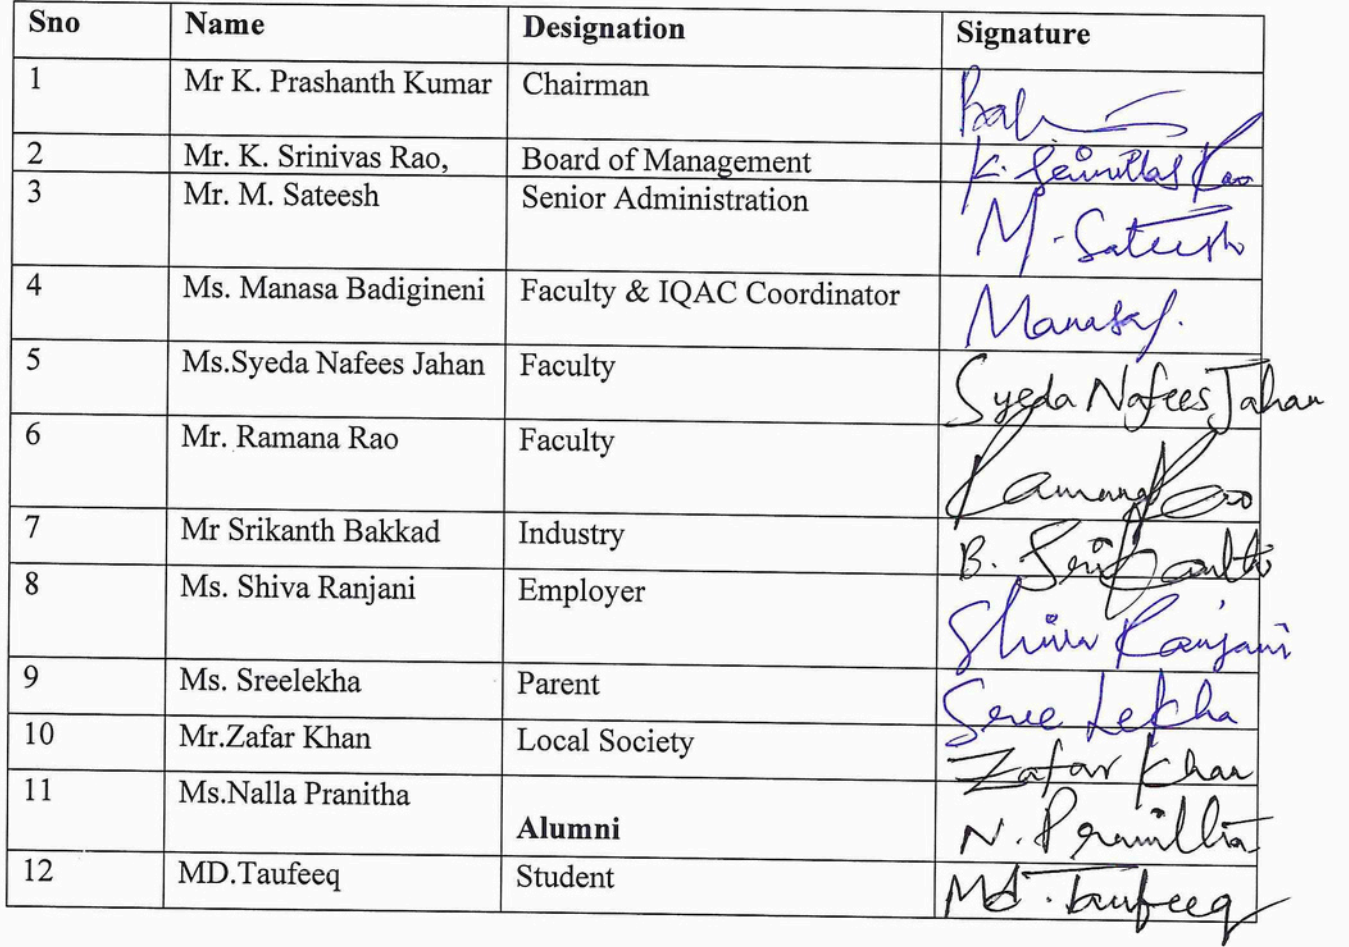 Sno Name Designation Signature
1 Mr K. Prashanth Kumar Chairman
2 Mr. K. Srinivas Rao, Board of Management K. Srinivas Rao
3 Mr. M. Sateesh Senior Administration M. Sateesh
4 Ms. Manasa Badigineni Faculty & IQAC Coordinator Manasa
5 Ms.Syeda Nafees Jahan Faculty Syeda Nafees Jahan
6 Mr. Ramana Rao Faculty Ramana Rao
7 Mr Srikanth Bakkad Industry B. Srikanth
8 Ms. Shiva Ranjani Employer Shiva Ranjani
9 Ms. Sreelekha Parent Sree Lekha
10 Mr.Zafar Khan Local Society Zafar Khan
11 Ms.Nalla Pranitha Alumni N. Pranitha
12 MD.Taufeeq Student Md. Taufeeq